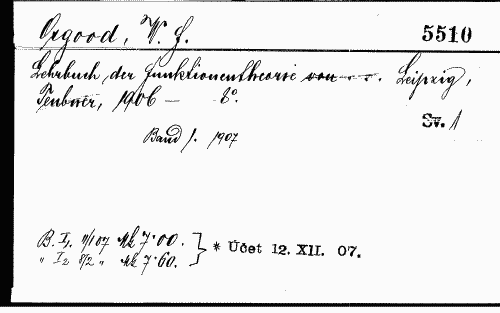 Osgood, W. F. 5510
Lehrbuch der Funktionentheorie von - - -. Leipzig,
Teubner, 1906 — 8°.
Sv. 1
Band I. 1907
B. I1. 11/1 07 Mk 7·00.
„ I2 8/2 „ Mk 7·60. } * Účet 12. XII. 07.